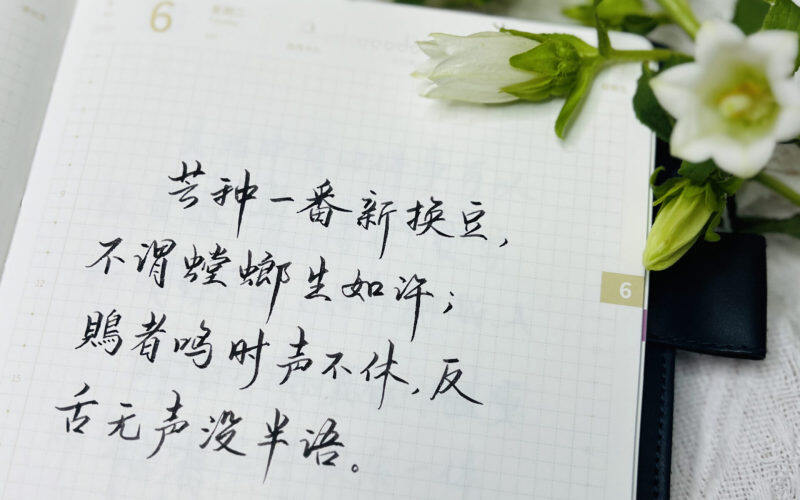 6
芒种一番新换豆，
不谓螳螂生如许；
鵙者鸣时声不休，反
舌无声没半语。
6